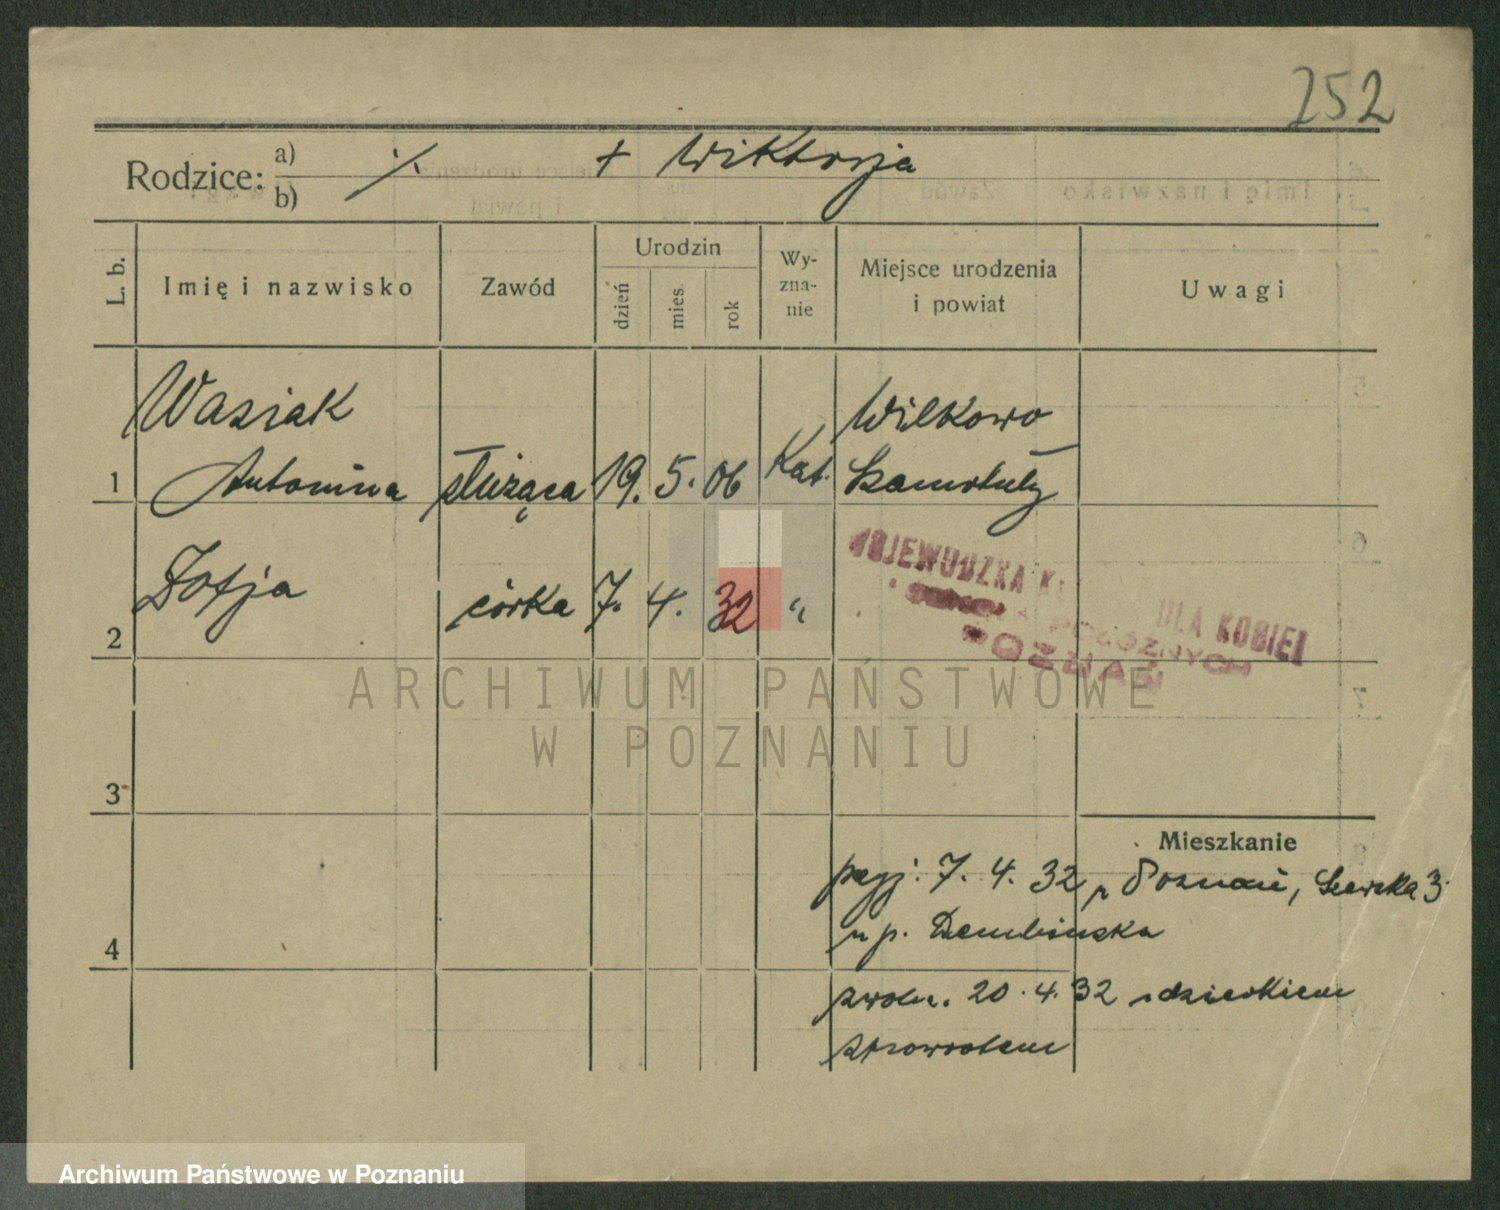 252
Rodzice: a) b) ./. + Wiktorja
L. b.
Imię i nazwisko
Zawód
Urodzin
dzień
mies.
rok
Wy-
zna-
nie
Miejsce urodzenia
i powiat
Uwagi
Wasiak
Wilkowo
1 Antonina służąca 19. 5. 06 Kat. Szamotuły
2 Zofja córka 7. 4. 32 "
WOJEWÓDZKA KL DLA KOBIET
POŁOŻNYCH
POZNAŃ
ARCHIWUM PAŃSTWOWE
W POZNANIU
3
Mieszkanie
przyj. 7. 4. 32 Poznań, Szewska 3
4 u p. Dembinska
zwoln. 20. 4. 32 z dzieckiem
zpowrotem
Archiwum Państwowe w Poznaniu